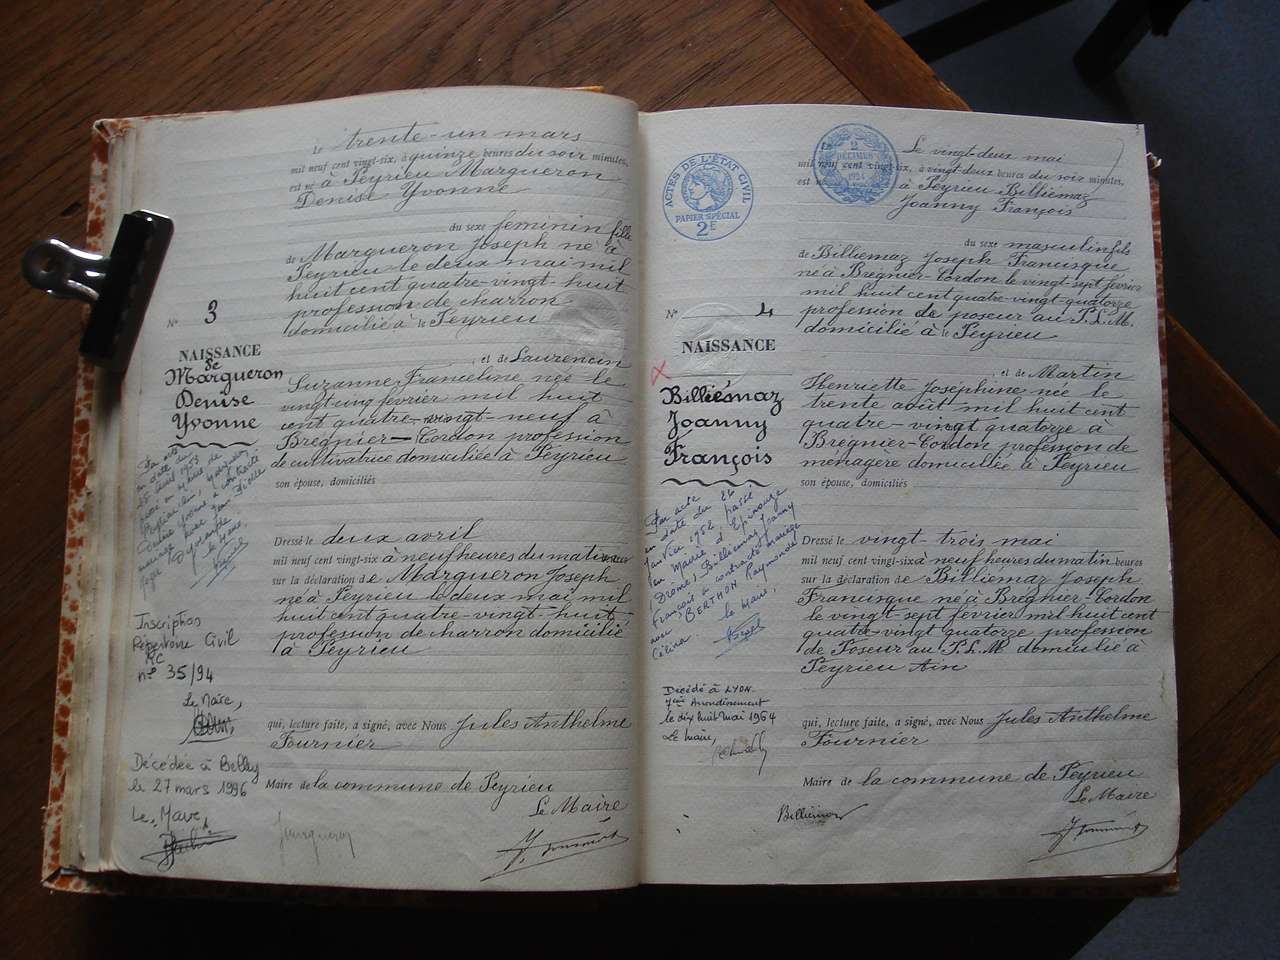 Le trente-un mars
mil neuf cent vingt-six, à quinze heures du soir minutes,
est né à Peyrieu Margueron
Denise Yvonne
du sexe feminin fille
de Margueron Joseph né à
Peyrieu le deux mai mil
huit cent quatre-vingt-huit
profession de charron
domicilié à le Peyrieu
N° 3
NAISSANCE
de
Margueron
Denise
Yvonne
et de Laurencin
Suzanne Franceline née le
vingt-cinq février mil huit
cent quatre-vingt-neuf à
Bregnier-Cordon profession
de cultivatrice domiciliée à Peyrieu
son épouse, domiciliés
Dressé le deux avril
mil neuf cent vingt-six à neuf heures du matin
sur la déclaration de Margueron Joseph
né à Peyrieu le deux mai mil
huit cent quatre-vingt-huit
profession de charron domicilié
à Peyrieu
Inscription
Répertoire Civil
RC
n° 35/94
Le Maire,
qui, lecture faite, a signé, avec Nous Jules Anthelme
Fournier
Maire de la commune de Peyrieu
Le Maire
Décédée à Belley
le 27 mars 1996
Le Maire,
Margueron
J. Fournier
ACTES DE L'ÉTAT CIVIL
PAPIER SPÉCIAL
2E
2
DÉCIMES
1924
Le vingt-deux mai
mil neuf cent vingt-six, à vingt-deux heures du soir minutes,
est né à Peyrieu Billiémaz
Joanny François
du sexe masculin fils
de Billiemaz Joseph Francisque
né à Bregnier-Cordon le vingt-sept février
mil huit cent quatre-vingt quatorze
profession de poseur au P.L.M.
domicilié à le Peyrieu
N° 4
NAISSANCE
Billiémaz
Joanny
François
et de Martin
Henriette Joséphine née le
trente août mil huit cent
quatre-vingt quatorze à
Bregnier-Cordon profession de
ménagère domiciliée à Peyrieu
son épouse, domiciliés
Par acte
en date du 26
Janvier 1952 passé
en Mairie d'Epinouze
(Drôme) Billiemaz Joanny
François a contracté mariage
avec BERTHON Raymonde
Célina. le Maire,
Dressé le vingt-trois mai
mil neuf cent vingt-six à neuf heures du matin heures
sur la déclaration de Billiémaz Joseph
Francisque né à Bregnier-Cordon
le vingt sept février mil huit cent
quatre-vingt quatorze profession
de Poseur au P.L.M domicilié à
Peyrieu Ain
Décédé à LYON
Arrondissement
le dix huit mai 1964
Le Maire,
qui, lecture faite, a signé, avec Nous Jules Anthelme
Fournier
Maire de la commune de Peyrieu
Le Maire
Billiémaz
J. Fournier